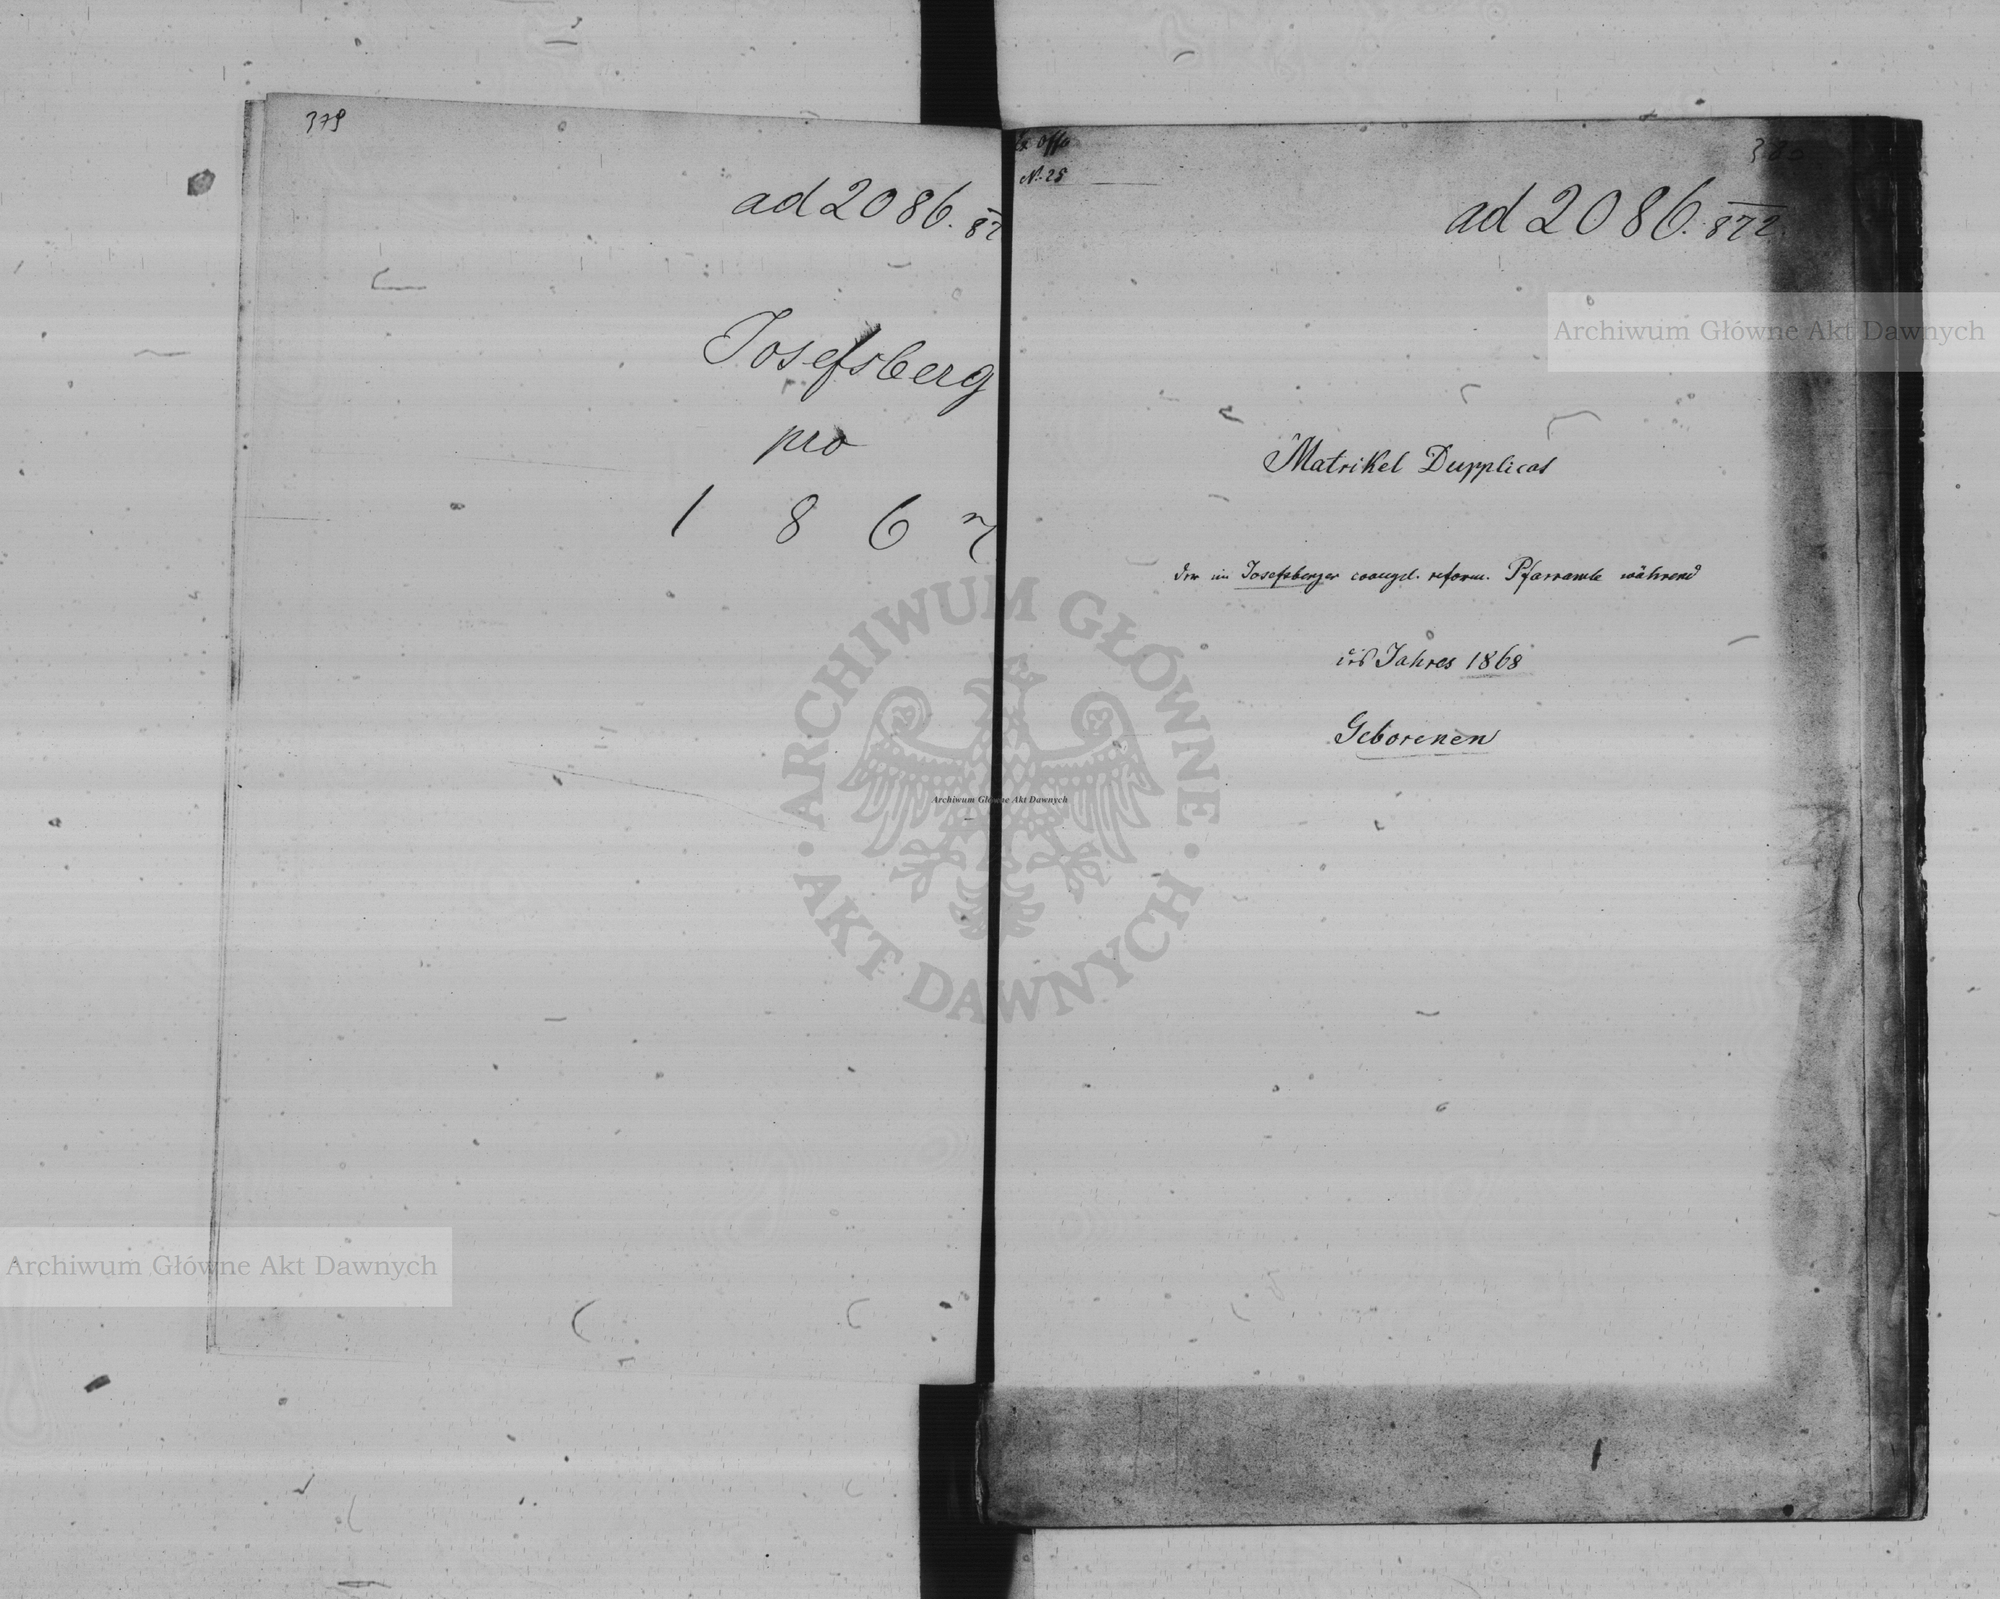 379
ad 2086. 87
Josefsberg
pro
1867
Ex Offo
N. 25
380
ad 2086. 872.
Matrikel Dupplicat
der im Josefsberger evangel. reform. Pfarramte während
des Jahres 1868
Geborenen
ARCHIWUM GŁÓWNE
AKT DAWNYCH
Archiwum Główne Akt Dawnych
Archiwum Główne Akt Dawnych
Archiwum Główne Akt Dawnych